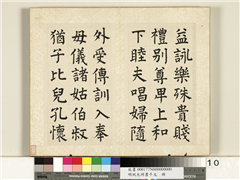 益詠樂殊貴賤
禮別尊卑上和
下睦夫唱婦隨
外受傅訓入奉
母儀諸姑伯叔
猶子比兒孔懷
10